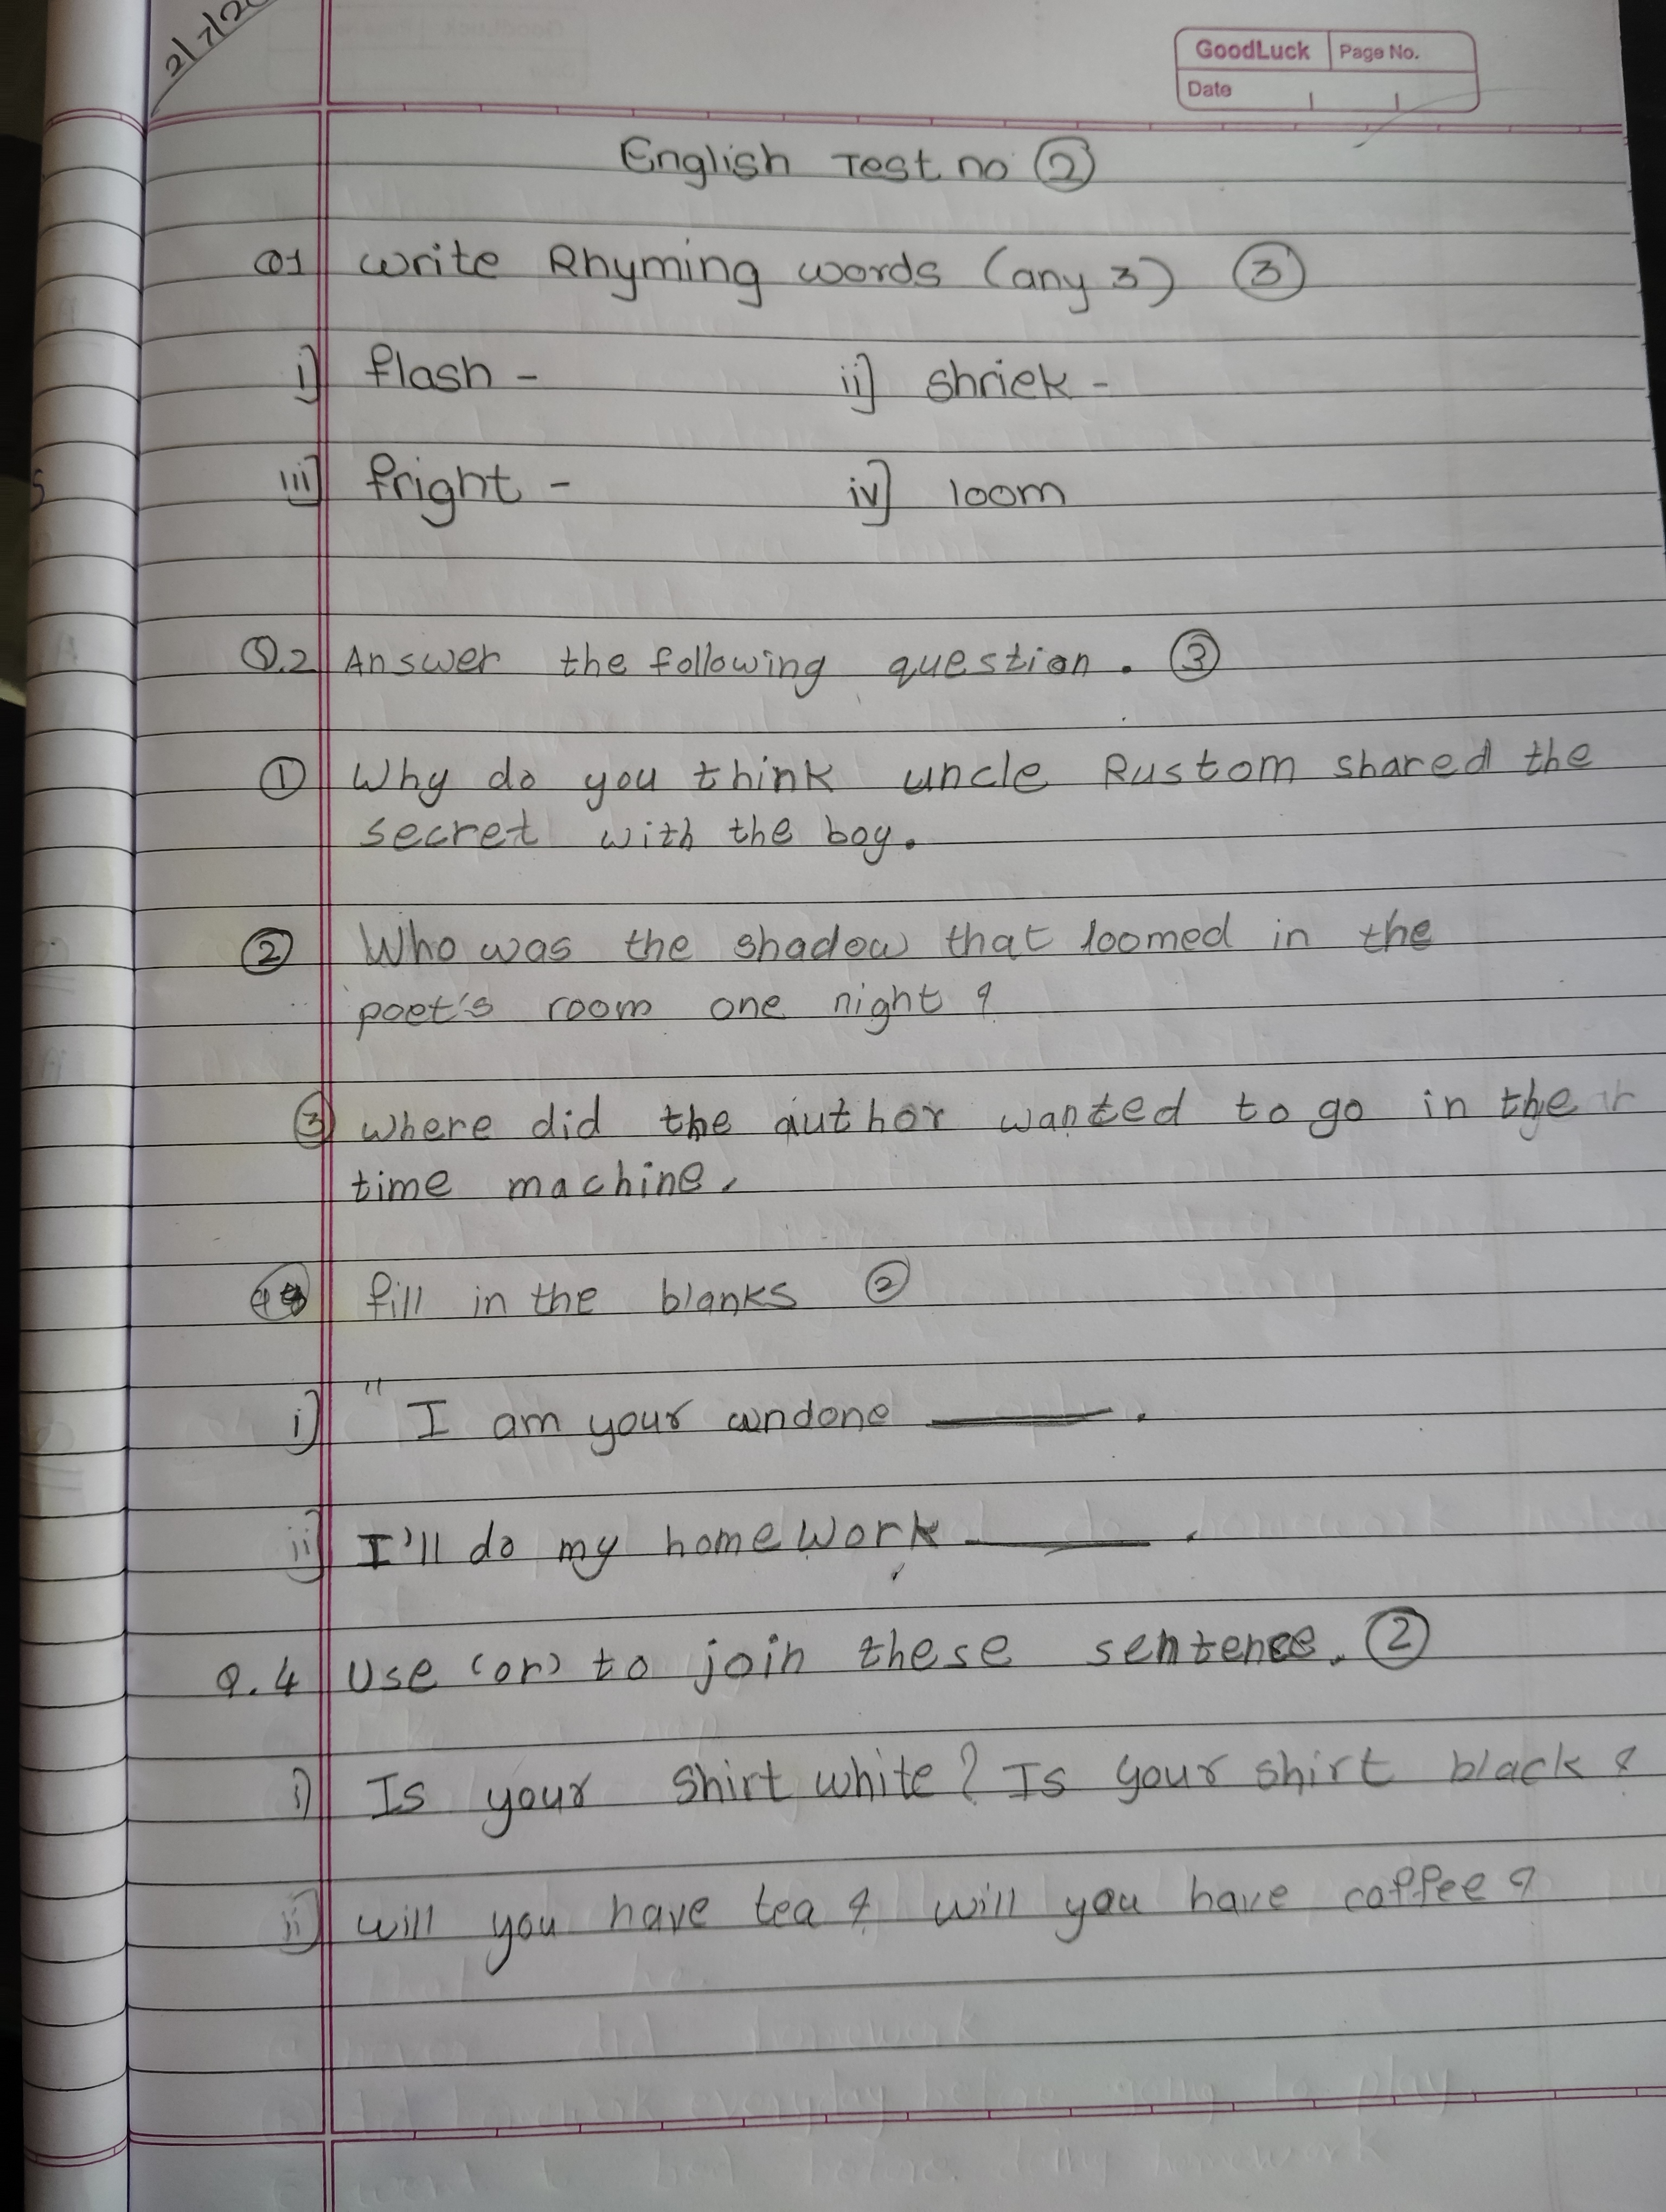 2/7/20
GoodLuck Page No.
Date
English Test no ②
Q1 Write Rhyming words (any 3) ③
i] flash - ii] shriek -
iii] fright - iv] loom
Q.2 Answer the following question. ③
① Why do you think uncle Rustom shared the
secret with the boy.
② Who was the shadow that loomed in the
poet's room one night ?
③ where did the author wanted to go in the
time machine.
fill in the blanks ②
i) " I am your undone ______ .
ii) I'll do my home work ______ .
Q.4 Use (or) to join these sentence. ②
i) Is your shirt white? Is your shirt black ?
ii) will you have tea ? will you have coffee ?